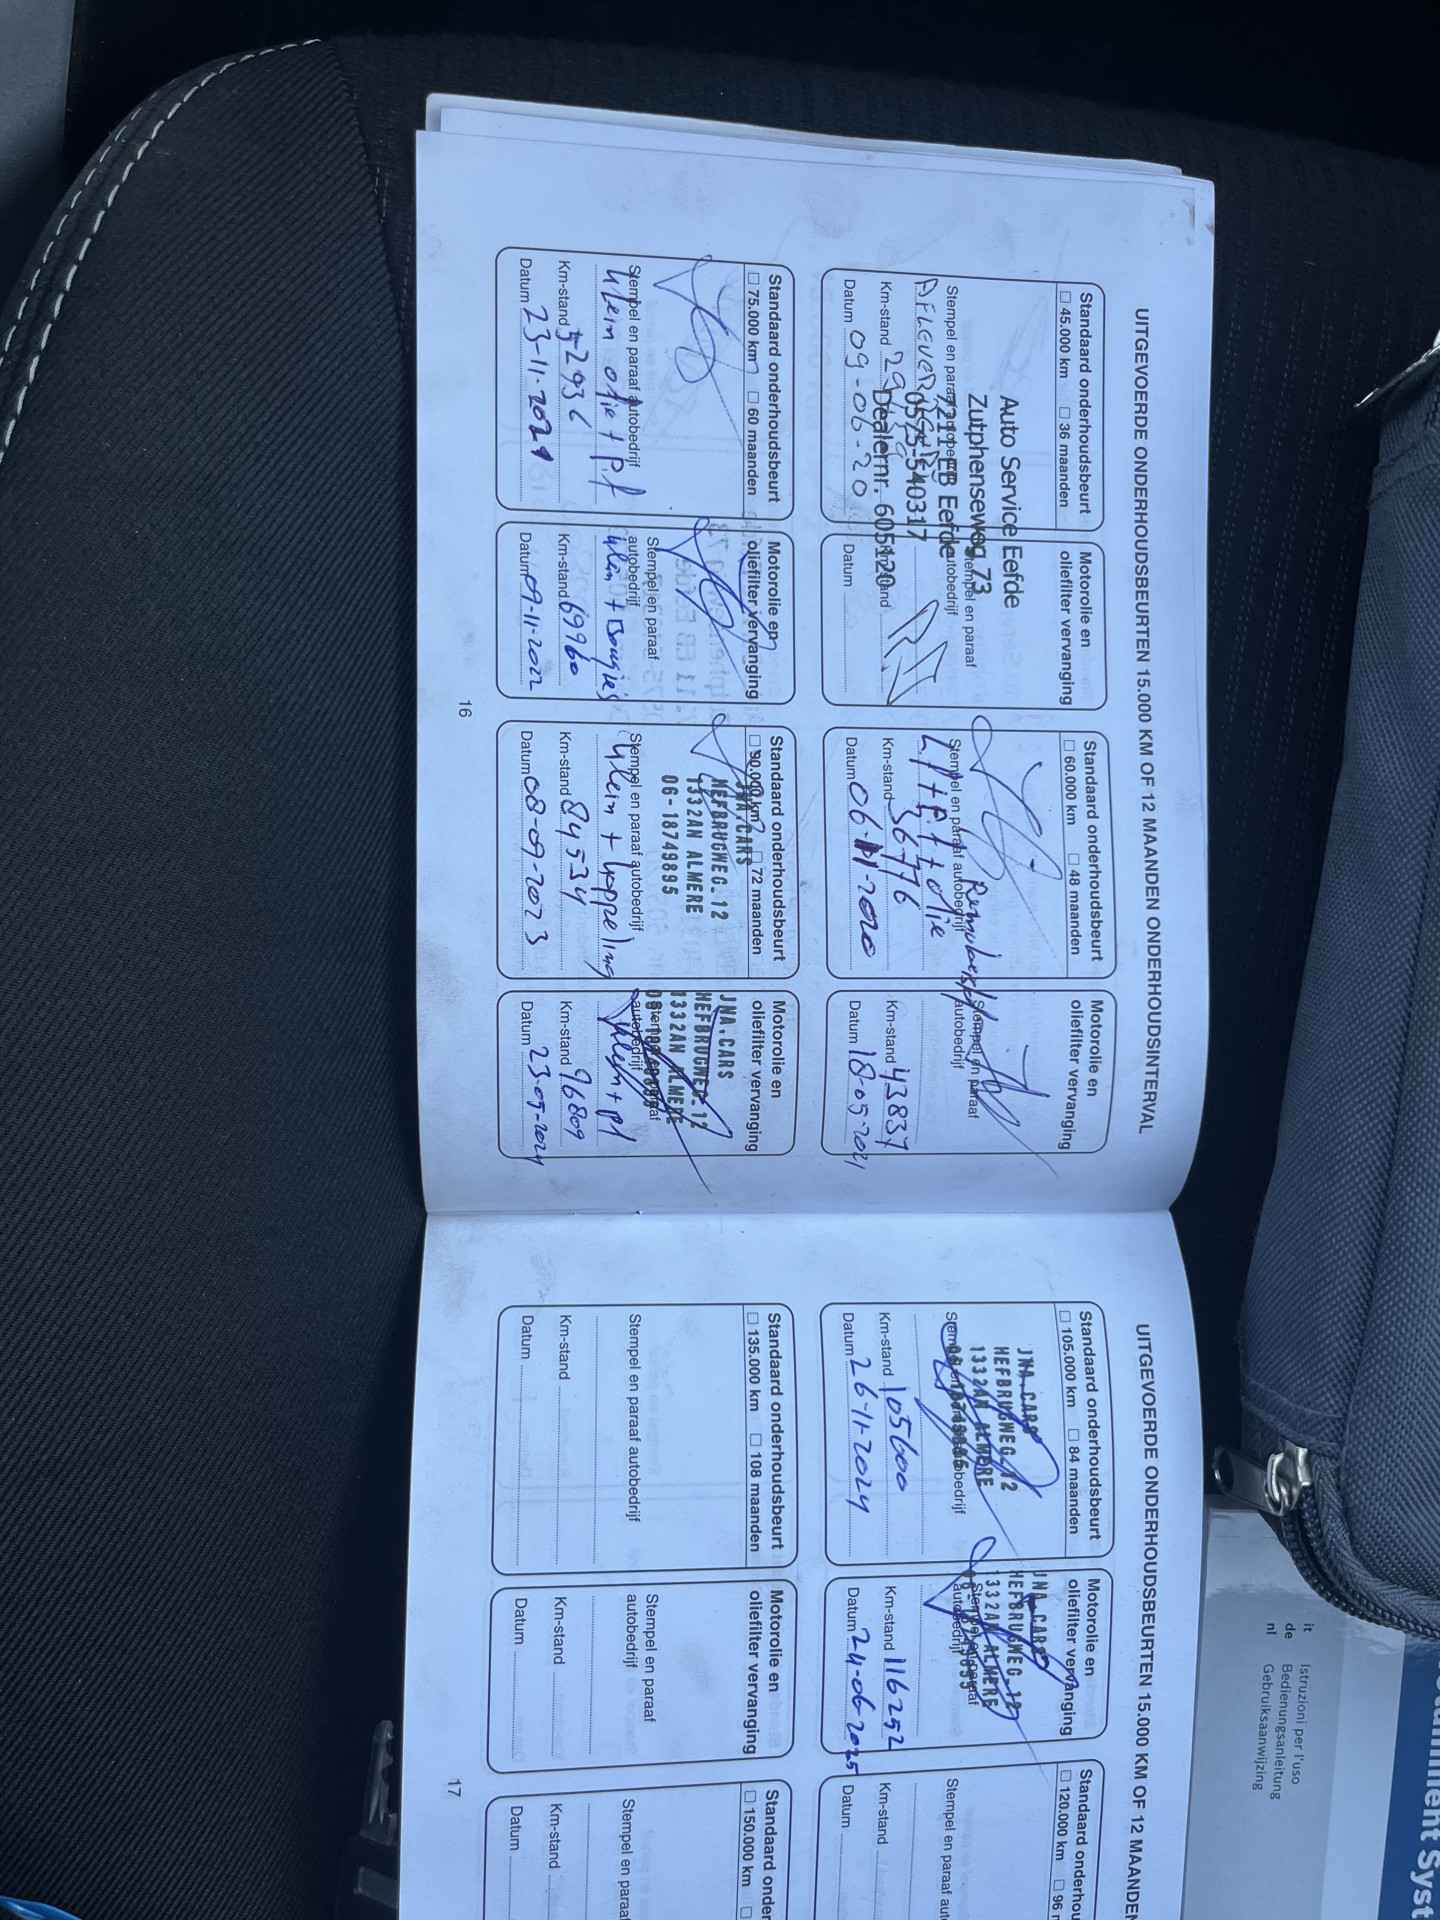 UITGEVOERDE ONDERHOUDSBEURTEN 15.000 KM OF 12 MAANDEN ONDERHOUDSINTERVAL
Standaard onderhoudsbeurt
□ 45.000 km □ 36 maanden
Auto Service Eefde
Zutphenseweg 73
7211 EB Eefde
0575-540317
Dealernr. 605120
Stempel en paraaf autobedrijf
Km-stand
Datum 09-06-20
Motorolie en
oliefilter vervanging
Stempel en paraaf
autobedrijf
Km-stand
Datum
Standaard onderhoudsbeurt
□ 60.000 km □ 48 maanden
Stempel en paraaf autobedrijf
+ olie
Km-stand 36776
Datum 06-11-2020
Motorolie en
oliefilter vervanging
Stempel en paraaf
autobedrijf
Km-stand 43837
Datum 18-05-2021
Standaard onderhoudsbeurt
□ 75.000 km □ 60 maanden
Stempel en paraaf autobedrijf
klein olie + p.f
Km-stand 52936
Datum 23-11-2021
Motorolie en
oliefilter vervanging
Stempel en paraaf
autobedrijf
klein + Bougies
Km-stand 69960
Datum 09-11-2022
Standaard onderhoudsbeurt
□ 90.000 km □ 72 maanden
JNA.CARS
HEFBRUGWEG.12
1332AN ALMERE
06-18749895
Stempel en paraaf autobedrijf
klein + koppeling
Km-stand 84534
Datum 08-09-2023
Motorolie en
oliefilter vervanging
JNA.CARS
HEFBRUGWEG.12
1332AN ALMERE
Stempel en paraaf
autobedrijf
klein + pf
Km-stand 96809
Datum 23-05-2024
16
UITGEVOERDE ONDERHOUDSBEURTEN 15.000 KM OF 12 MAANDEN
Standaard onderhoudsbeurt
□ 105.000 km □ 84 maanden
JNA.CARS
HEFBRUGWEG.12
1332AN ALMERE
Stempel en paraaf autobedrijf
Km-stand 105600
Datum 26-11-2024
Motorolie en
oliefilter vervanging
JNA.CARS
HEFBRUGWEG.12
1332AN ALMERE
Stempel en paraaf
autobedrijf
Km-stand 116252
Datum 24-06-2025
Standaard onderhou
□ 120.000 km □ 96 m
Stempel en paraaf aut
Km-stand
Datum
Standaard onderhoudsbeurt
□ 135.000 km □ 108 maanden
Stempel en paraaf autobedrijf
Km-stand
Datum
Motorolie en
oliefilter vervanging
Stempel en paraaf
autobedrijf
Km-stand
Datum
Standaard onder
□ 150.000 km □
Stempel en paraa
Km-stand
Datum
17
it Istruzioni per l'uso
de Bedienungsanleitung
nl Gebruiksaanwijzing